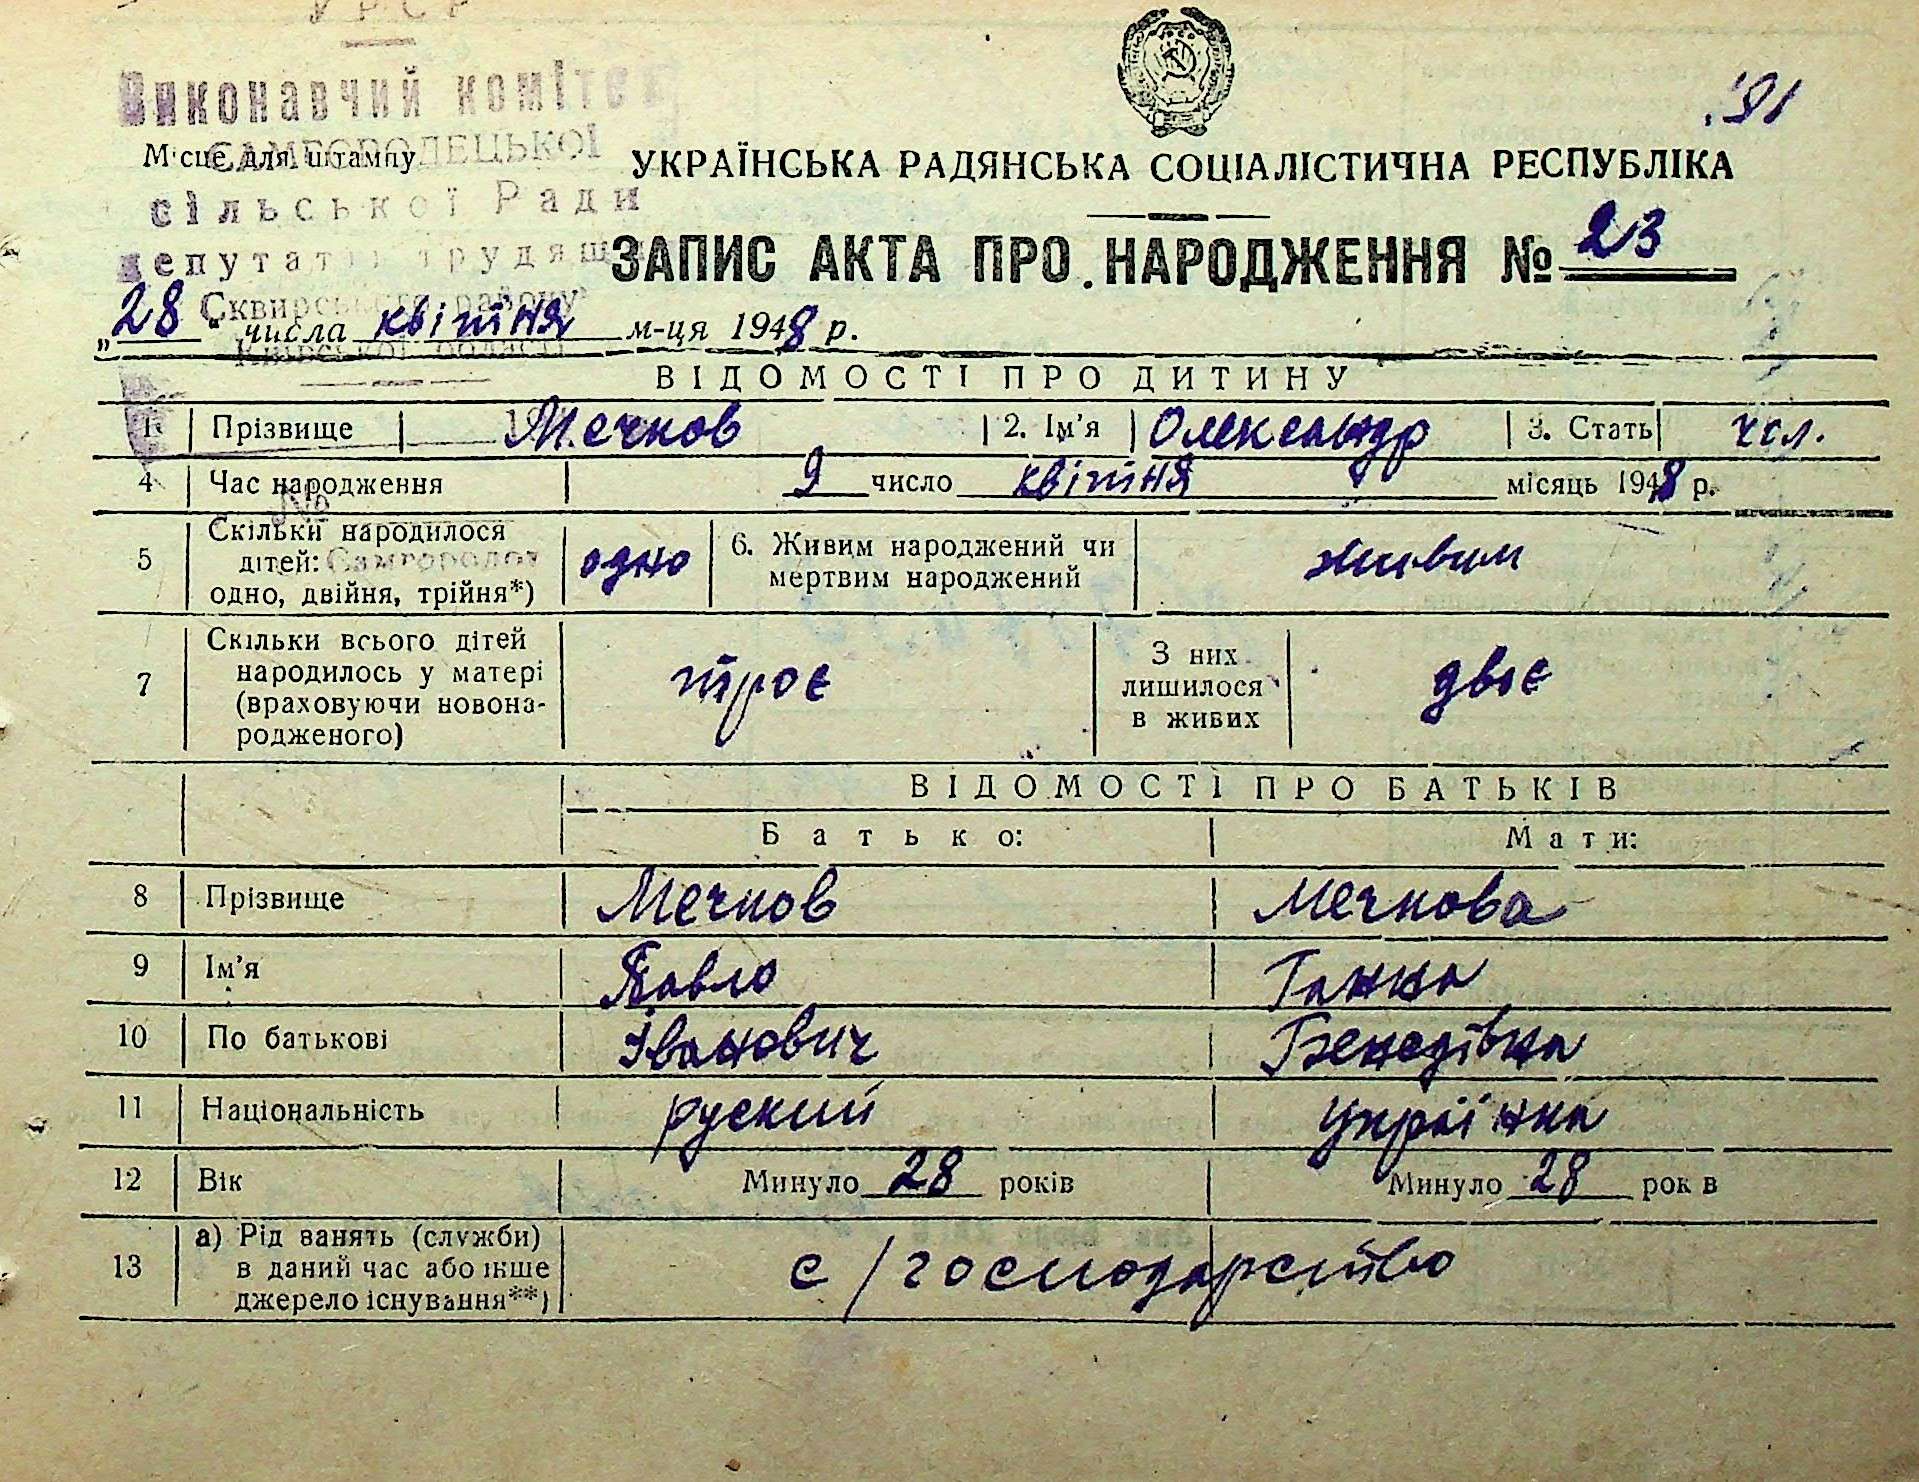 УРСР
Виконавчий комітет
САМГОРОДЕЦЬКОЇ
Місце для штампу
сільської Ради
депутатів трудящ
Сквирського району
Київської області
91
УКРАЇНСЬКА РАДЯНСЬКА СОЦІАЛІСТИЧНА РЕСПУБЛІКА
ЗАПИС АКТА ПРО НАРОДЖЕННЯ № 23
„28" числа квітня м-ця 1948 р.
ВІДОМОСТІ ПРО ДИТИНУ
1 Прізвище Мечков 2. Ім'я Олександр 3. Стать чол.
4 Час народження 9 число квітня місяць 1948 р.
№
5 Скільки народилося дітей: одно, двійня, трійня*) одно 6. Живим народжений чи мертвим народжений живим
7 Скільки всього дітей народилось у матері (враховуючи новонародженого) троє З них лишилося в живих двоє
ВІДОМОСТІ ПРО БАТЬКІВ
Батько: Мати:
8 Прізвище Мечков Мечкова
9 Ім'я Павло Ганна
10 По батькові Іванович Бенедівна
11 Національність руский українка
12 Вік Минуло 28 років Минуло 28 рок в
13 а) Рід занять (служби) в даний час або інше джерело існування**) с/господарство